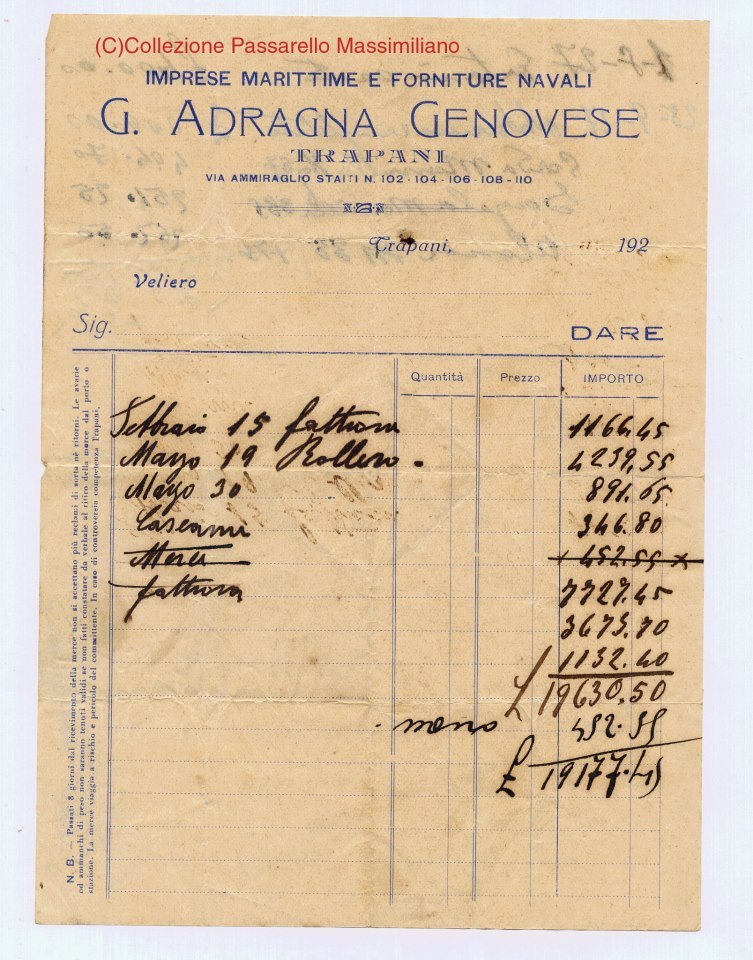 (C)Collezione Passarello Massimiliano
IMPRESE MARITTIME E FORNITURE NAVALI
G. ADRAGNA GENOVESE
TRAPANI
VIA AMMIRAGLIO STAITI N. 102 - 104 - 106 - 108 - 110
Trapani, 192
Veliero
Sig. DARE
Quantità Prezzo IMPORTO
Febbraio 15 fattura 1166,45
Mayo 19 Rollero 4239,55
Mayo 30 891.65
Cascami 346.80
Merci 452.55
fattura 7727.45
3673.70
1132.40
£ 19630.50
meno 452.55
£ 19177.45
N. B. — Passati 8 giorni dal ricevimento della merce non si accettano più reclami di sorta nè ritorni. Le avarie
od ammanchi di peso non saranno tenuti validi se non fatti constatare da verbale al ritiro della merce dal porto o
stazione. La merce viaggia a rischio e pericolo del committente. In caso di controversia competenza Trapani.